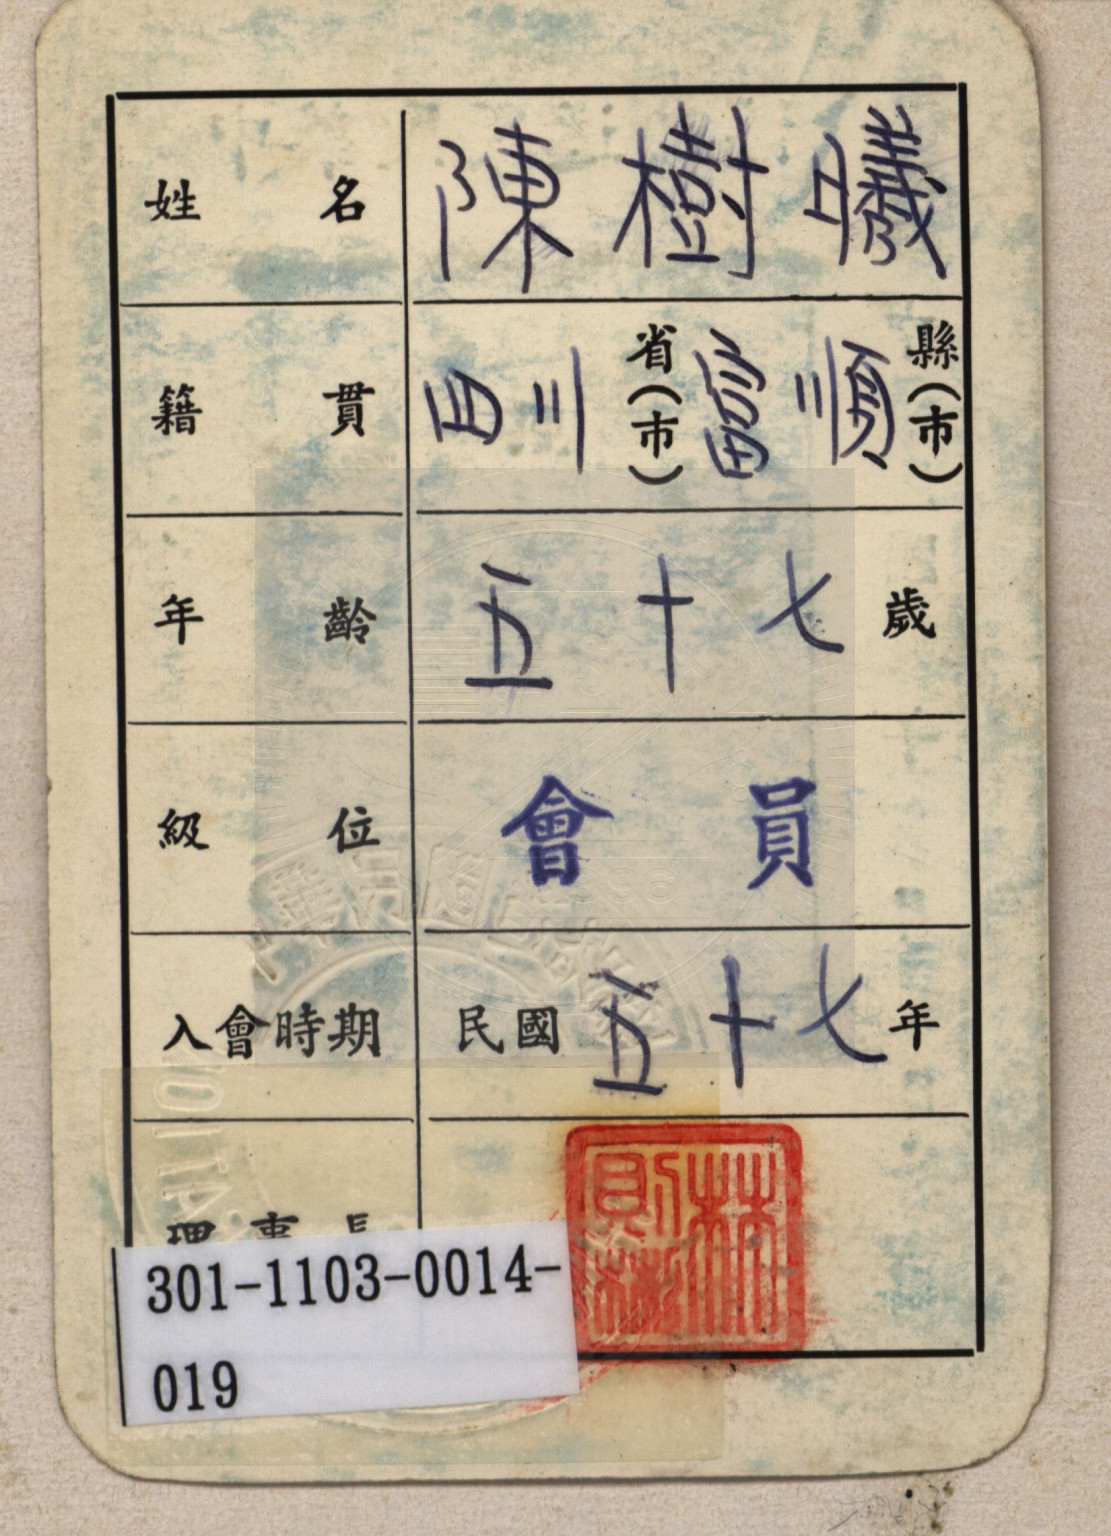 姓名 陳樹曦
籍貫 四川省(市)富順縣(市)
年齡 五十七歲
級位 會員
入會時期 民國五十七年
理事長
301-1103-0014-
019